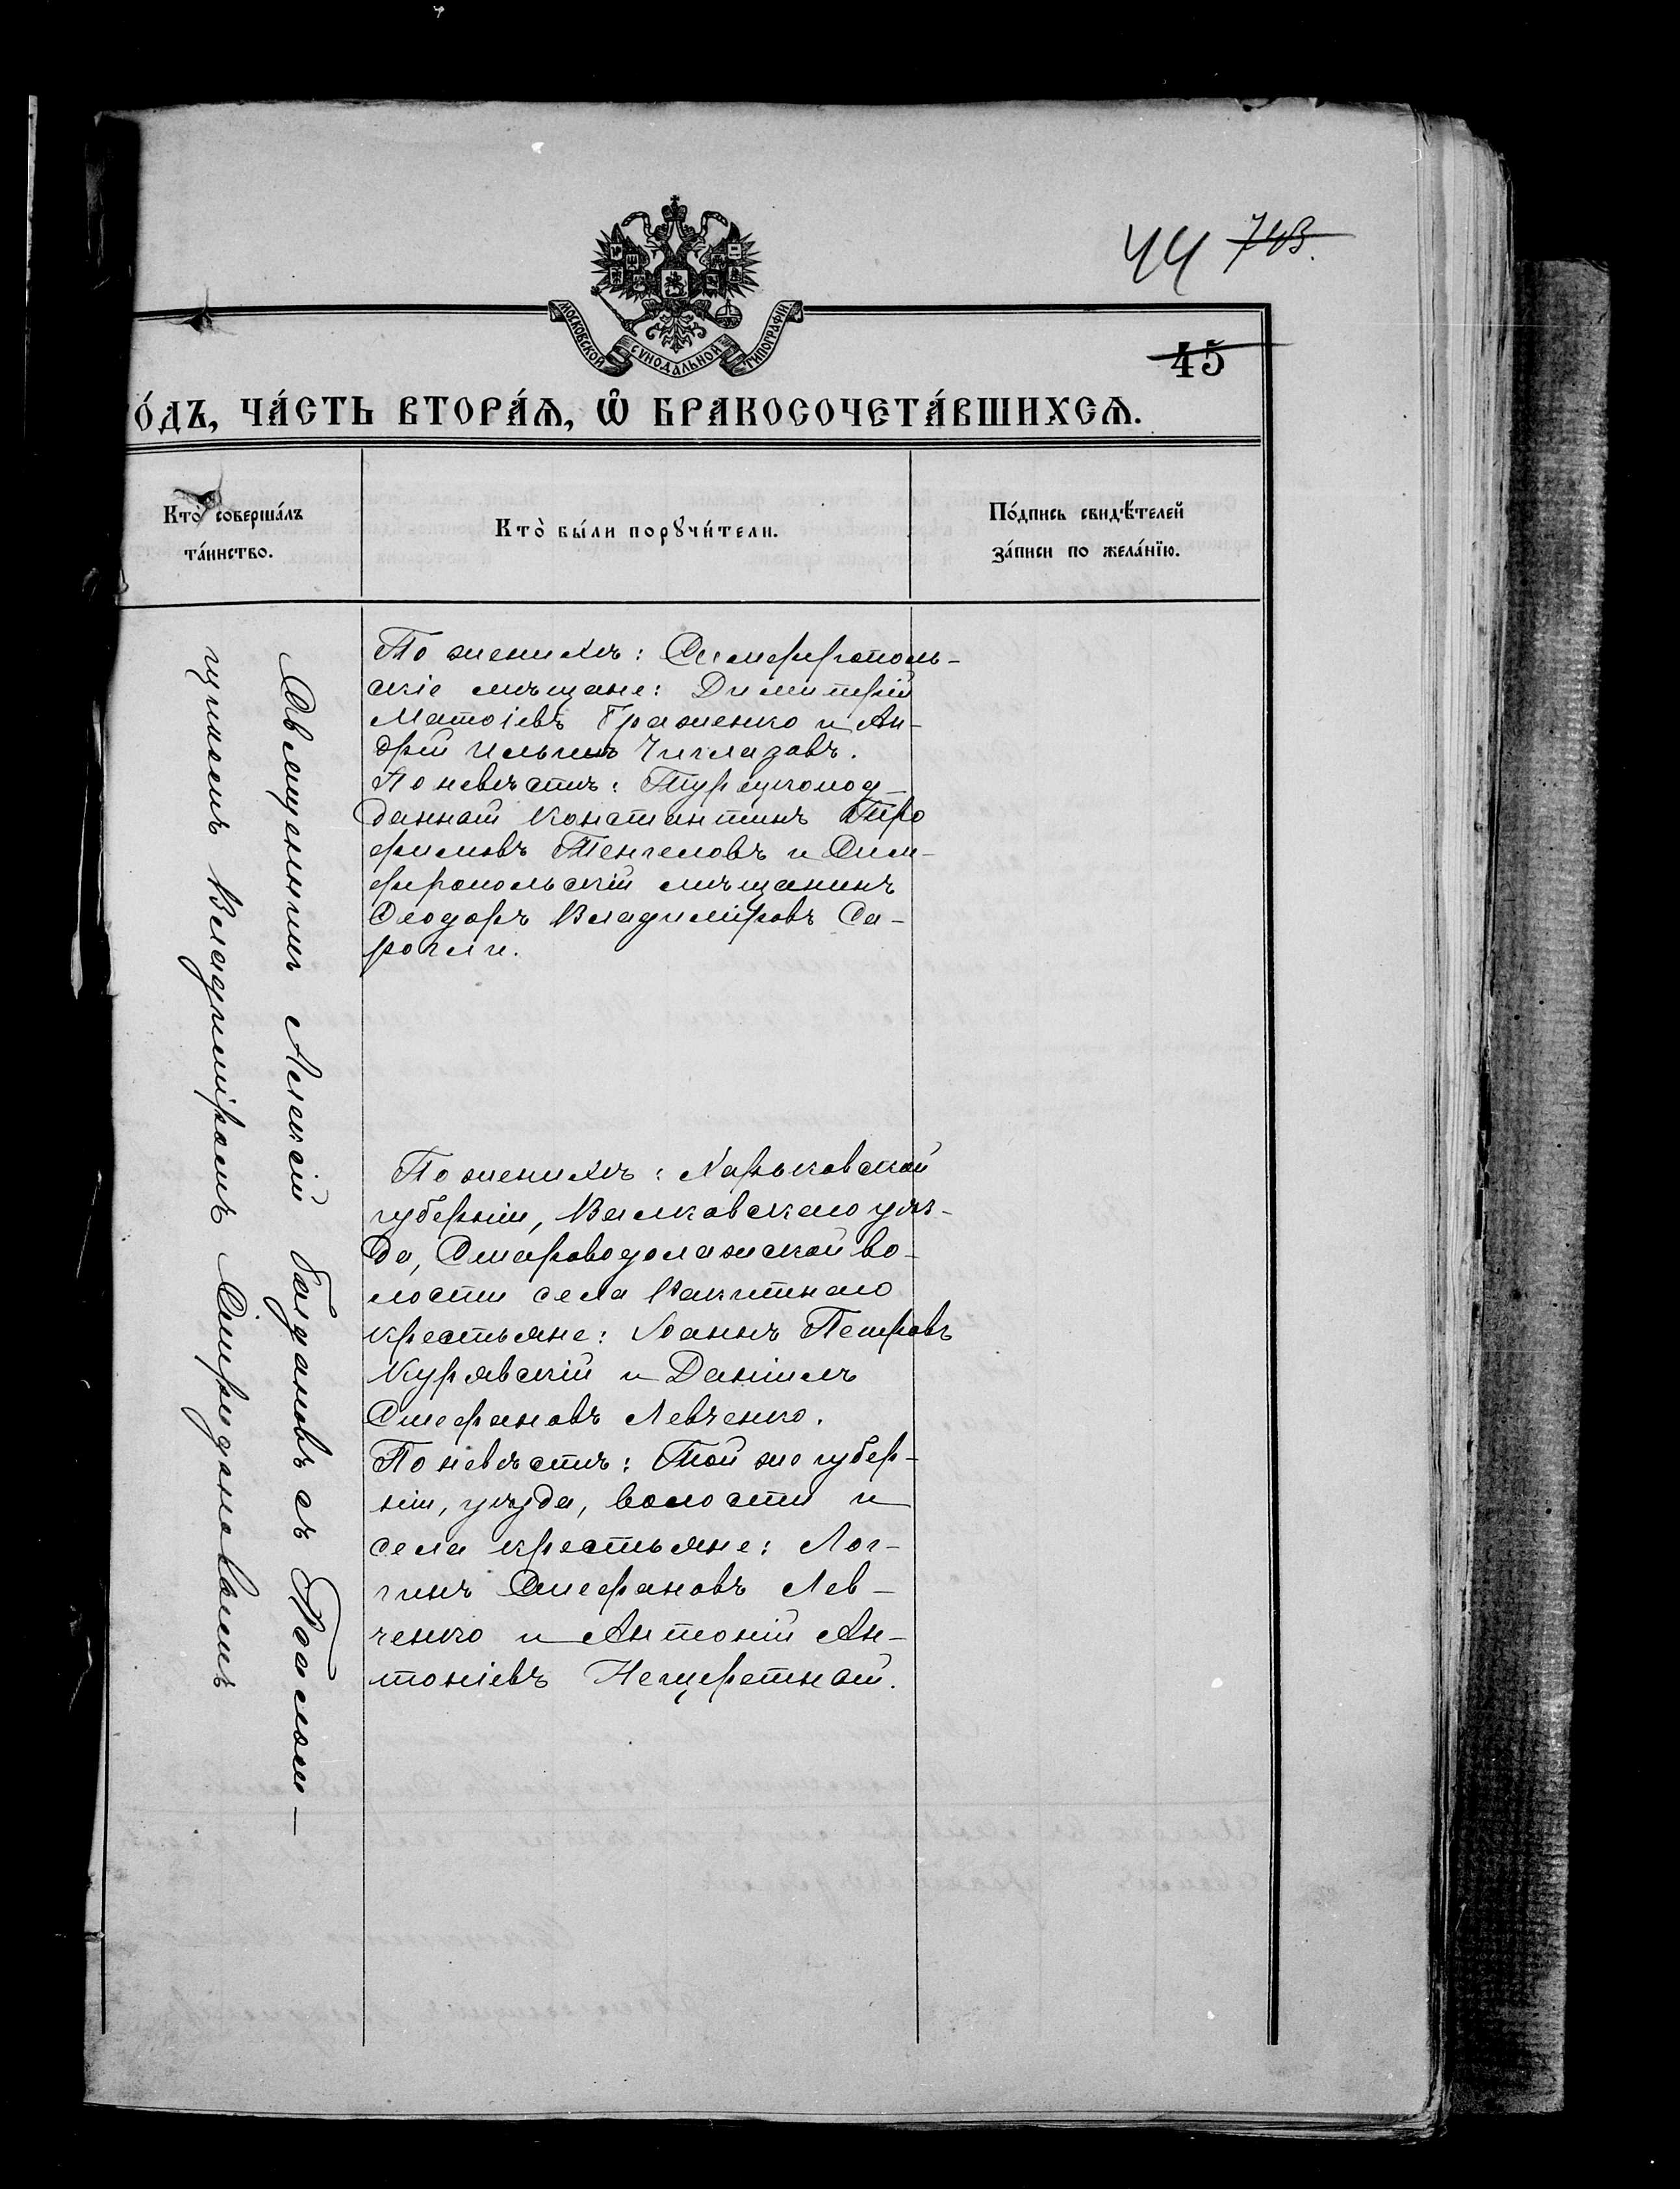 44 743.
МОСКОВСКОЙ СУНОДАЛЬНОЙ ТИПОГРАФІИ
45
О́ДЪ, ЧА́СТЬ ВТОРА́Ѧ, Ѽ БРАКОСОЧЕТА́ВШИХСѦ.
Кто̀ соверша́лъ
та́инство.
Кто̀ бы́ли порꙋчи́тели.
По́дпись свидѣ́телей
за́писи по жела́нїю.
Священникъ Алексій Богдановъ съ Псалом-
щикомъ Владиміромъ Спиридоновымъ
По женихѣ: Симферополь-
скіе мѣщане: Димитрій
Матѳіевъ Граженко и Ан-
дрей Ильинъ Чиглазовъ.
По невѣстѣ: Турецкопод-
данный Константинъ Тро
фимовъ Тенгеловъ и Сим-
феропольскій мѣщанинъ
Ѳеодоръ Владиміровъ Са-
рогли.
По женихѣ: Харьковской
губерніи, Валковскаго уѣз-
да, Староводолажской во-
лости села Ракитнаго
крестьяне: Іоаннъ Петровъ
Курявскій и Даніилъ
Стефановъ Левченко.
По невѣстѣ: Той же губер-
ніи, уѣзда, волости и
села крестьяне: Лог-
гинъ Стефановъ Лев-
ченко и Антоній Ан-
тоніевъ Нещретный.